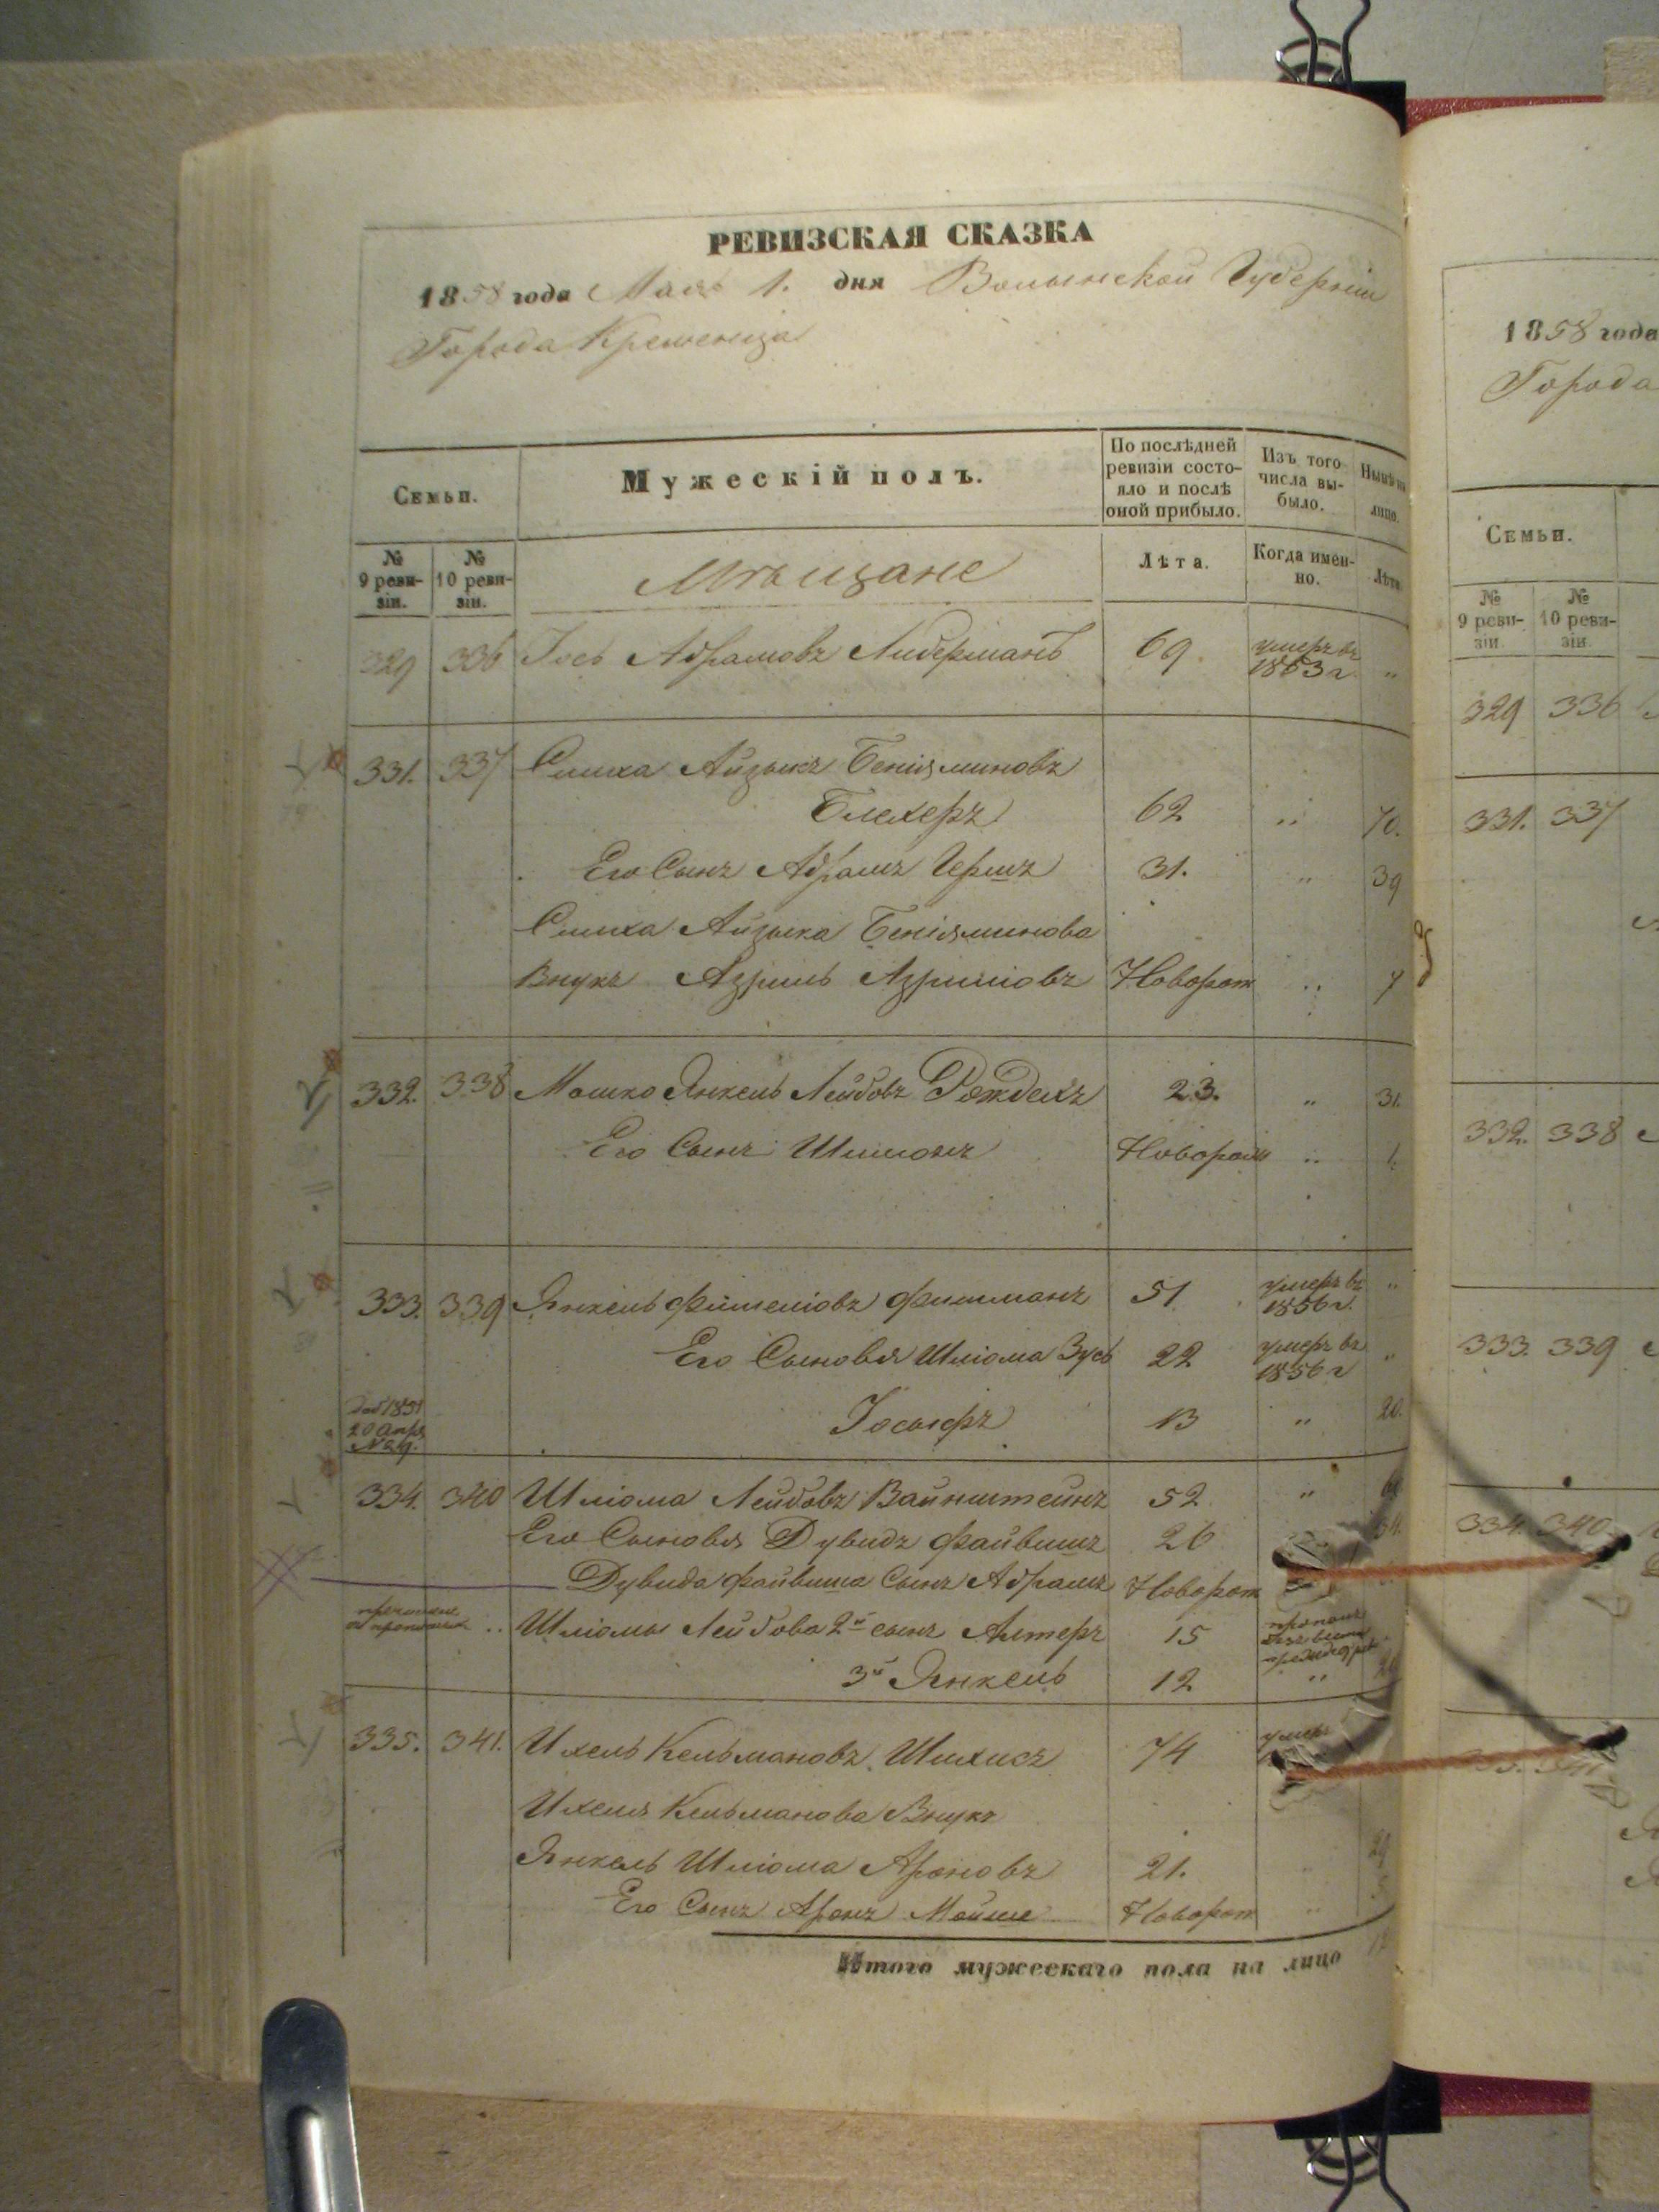 РЕВИЗСКАЯ СКАЗКА
1858 года Мая 1. дня Волынской Губерніи
Города Кременца
Семьи.
Мужескій полъ.
По послѣдней ревизіи состояло и послѣ оной прибыло.
Изъ того числа выбыло.
Нынѣ на лицо.
№ 9 ревизіи.
№ 10 ревизіи.
Мѣщане
Лѣта.
Когда именно.
Лѣта.
329 336 Іось Абрамовъ Лидерманъ 69 умеръ въ 1853 г. "
331. 337 Симха Айзыкъ Беніяминовъ
Блехеръ 62 " 70.
Его Сынъ Абрамъ Гершъ 31. " 39
Симха Айзыка Беніяминова
Внукъ Азриль Азриліовъ Новорож " 7
332. 338 Мошко Янкель Лейбовъ 23. " 31.
Его Сынъ Шимонъ Новорож "
333. 339 Янкель Фишеліовъ Фишманъ 51 умеръ въ 1856 г. "
Его Сыновья Шліома Зусь 22 умеръ въ 1856 г "
Іосьифъ 13 " 20.
20 Апр
334. 340 Шліома Лейбовъ Вайнштейнъ 52 "
Его Сыновья Дувидъ Файвишъ 26 34.
Дувида Файвиша Сынъ Абрамъ Новорож
Шліомы Лейбова 2й сынъ Алтеръ 15 пропалъ
3й Янкель 12 "
335. 341. Ихель Кельмановъ 74 умеръ
Ихеля Кельманова Внукъ
Янкель Шліома Ароновъ 21. " 29
Его Сынъ Аронъ Мойше Новорож "
Итого мужескаго пола на лицо
1858 года
Города
Семьи.
№ 9 ревизіи.
№ 10 ревизіи.
329 336
331. 337
332. 338
333. 339
334. 340